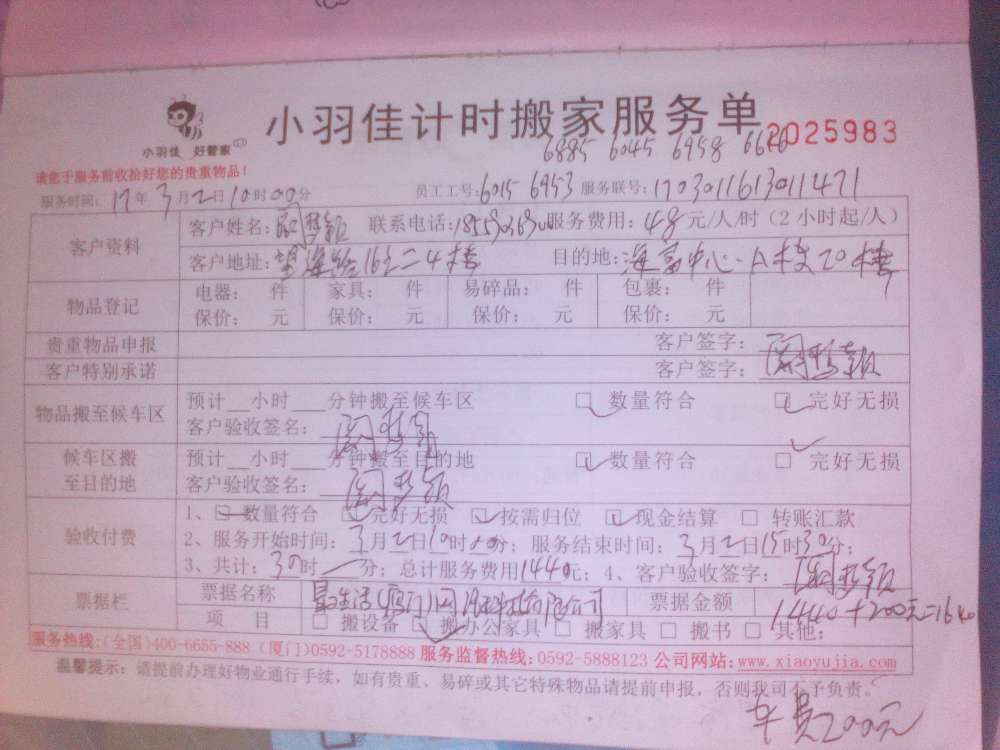 小羽佳计时搬家服务单
2025983
小羽佳 好管家
6885 6045 6958
请您于服务前收拾好您的贵重物品！
服务时间：17年3月2日10时00分 员工工号：6015 6953 服务联号：1703011613011471
客户资料
客户姓名： 联系电话： 服务费用：48元/人/时（2小时起/人）
客户地址： 目的地：海富中心A楼20楼
物品登记
电器： 件 家具： 件 易碎品： 件 包裹： 件
保价： 元 保价： 元 保价： 元 保价： 元
贵重物品申报 客户签字：
客户特别承诺 客户签字：
物品搬至候车区
预计__小时___分钟搬至候车区 □ 数量符合 □ 完好无损
客户验收签名：
候车区搬至目的地
预计__小时___分钟搬至目的地 □ 数量符合 □ 完好无损
客户验收签名：
验收付费
1、□ 数量符合 □ 完好无损 □ 按需归位 □ 现金结算 □ 转账汇款
2、服务开始时间：3月2日10时00分；服务结束时间：3月2日15时30分；
3、共计：30时一分；总计服务费用1440元；4、客户验收签字：
票据栏
票据名称 票据金额 1440+200元=1640
项 目 □ 搬设备 □ 搬办公家具 □ 搬家具 □ 搬书 □ 其他：
服务热线：(全国)400-6655-888 (厦门)0592-5178888 服务监督热线：0592-5888123 公司网站：www.xiaoyujia.com
温馨提示：请提前办理好物业通行手续，如有贵重、易碎或其它特殊物品请提前申报，否则我司不予负责。
车费200元